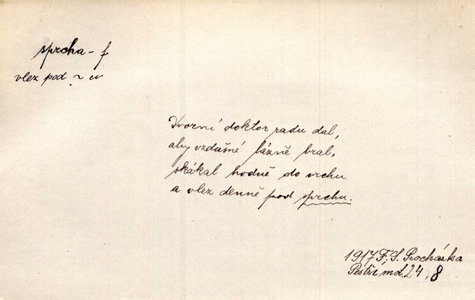 sprcha - f
vlez pod ~ u
Dvorní doktor radu dal,
aby vzdušné lázně bral,
skákal hodně do vrchu
a vlez denně pod sprchu.
1917 F. S. Procházka
24, 8